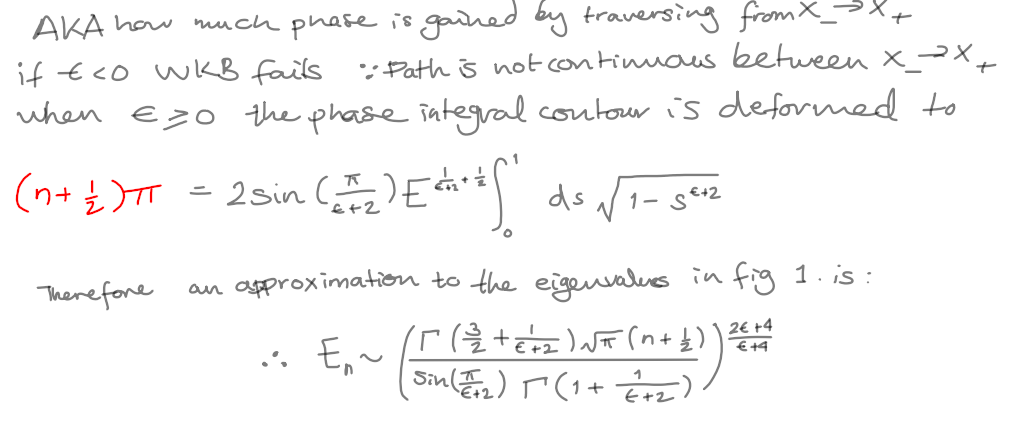 AKA how much phase is gained by traversing from x_- → x_+
if ϵ<0 WKB fails ∵ Path is not continuous between x_- → x_+
when ϵ⩾0 the phase integral contour is deformed to
(n+½)π = 2sin(π/(ϵ+2)) E^{1/(ϵ+2)+1/2} ∫_0^1 ds √(1-s^{ϵ+2})
Therefore an approximation to the eigenvalues in fig 1. is:
∴ E_n ~ (Γ(3/2+1/(ϵ+2))√π(n+½) / sin(π/(ϵ+2)) Γ(1+1/(ϵ+2)))^{(2ϵ+4)/(ϵ+4)}